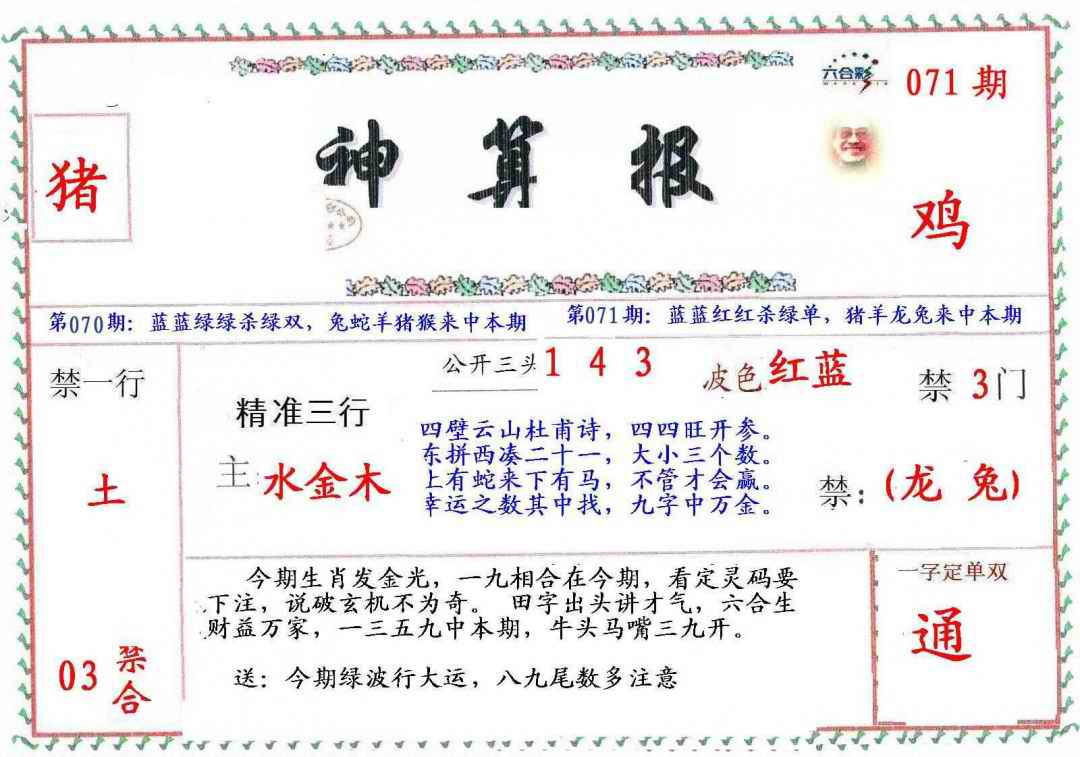 六合彩
071期
神算报
猪
鸡
第070期：蓝蓝绿绿杀绿双，兔蛇羊猪猴来中本期
第071期：蓝蓝红红杀绿单，猪羊龙兔来中本期
禁一行
土
03 禁合
公开三头 1 4 3
波色 红蓝
禁 3门
精准三行
主：水金木
四壁云山杜甫诗，四四旺开参。
东拼西凑二十一，大小三个数。
上有蛇来下有马，不管才会赢。
幸运之数其中找，九字中万金。
禁：(龙 兔)
今期生肖发金光，一九相合在今期，看定灵码要
下注，说破玄机不为奇。 田字出头讲才气，六合生
财益万家，一三五九中本期，牛头马嘴三九开。
送：今期绿波行大运，八九尾数多注意
一字定单双
通